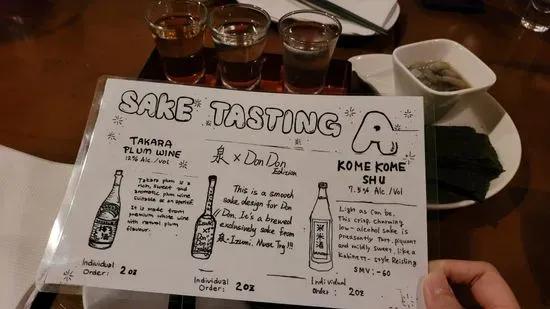 SAKE TASTING A
TAKARA
PLUM WINE
12% Alc./Vol
Takara plum is a
rich, sweet and
aromatic plum wine
suitable as an aperitif.
It is made from
premium white wine
with natural plum
flavour.
Individual
Order: 2oz
泉 × Don Don
Edition
This is a smooth
sake design for Don
Don. It's a brewed
exclusively sake from
泉-Izumi, Must Try!!!
Individual
Order: 2oz
KOME KOME
SHU
7.5% Alc/Vol
Light as can be,
This crisp, charming
low-alcohol sake is
pleasantly tart, piquant
and mildly sweet, like a
Kabinett-style Reisling
SMV: -60
米米酒
Individual
order: 2oz